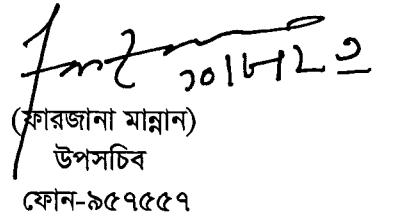 (ফারজানা মান্নান)
উপসচিব
ফোন-৯৫৭৫৫৭